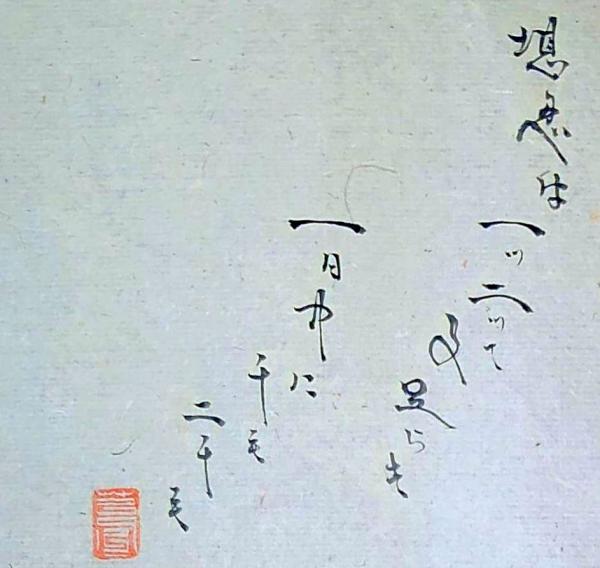 堪忍は
一ツ二ツて
は足らす
一日中に
千も
二千も